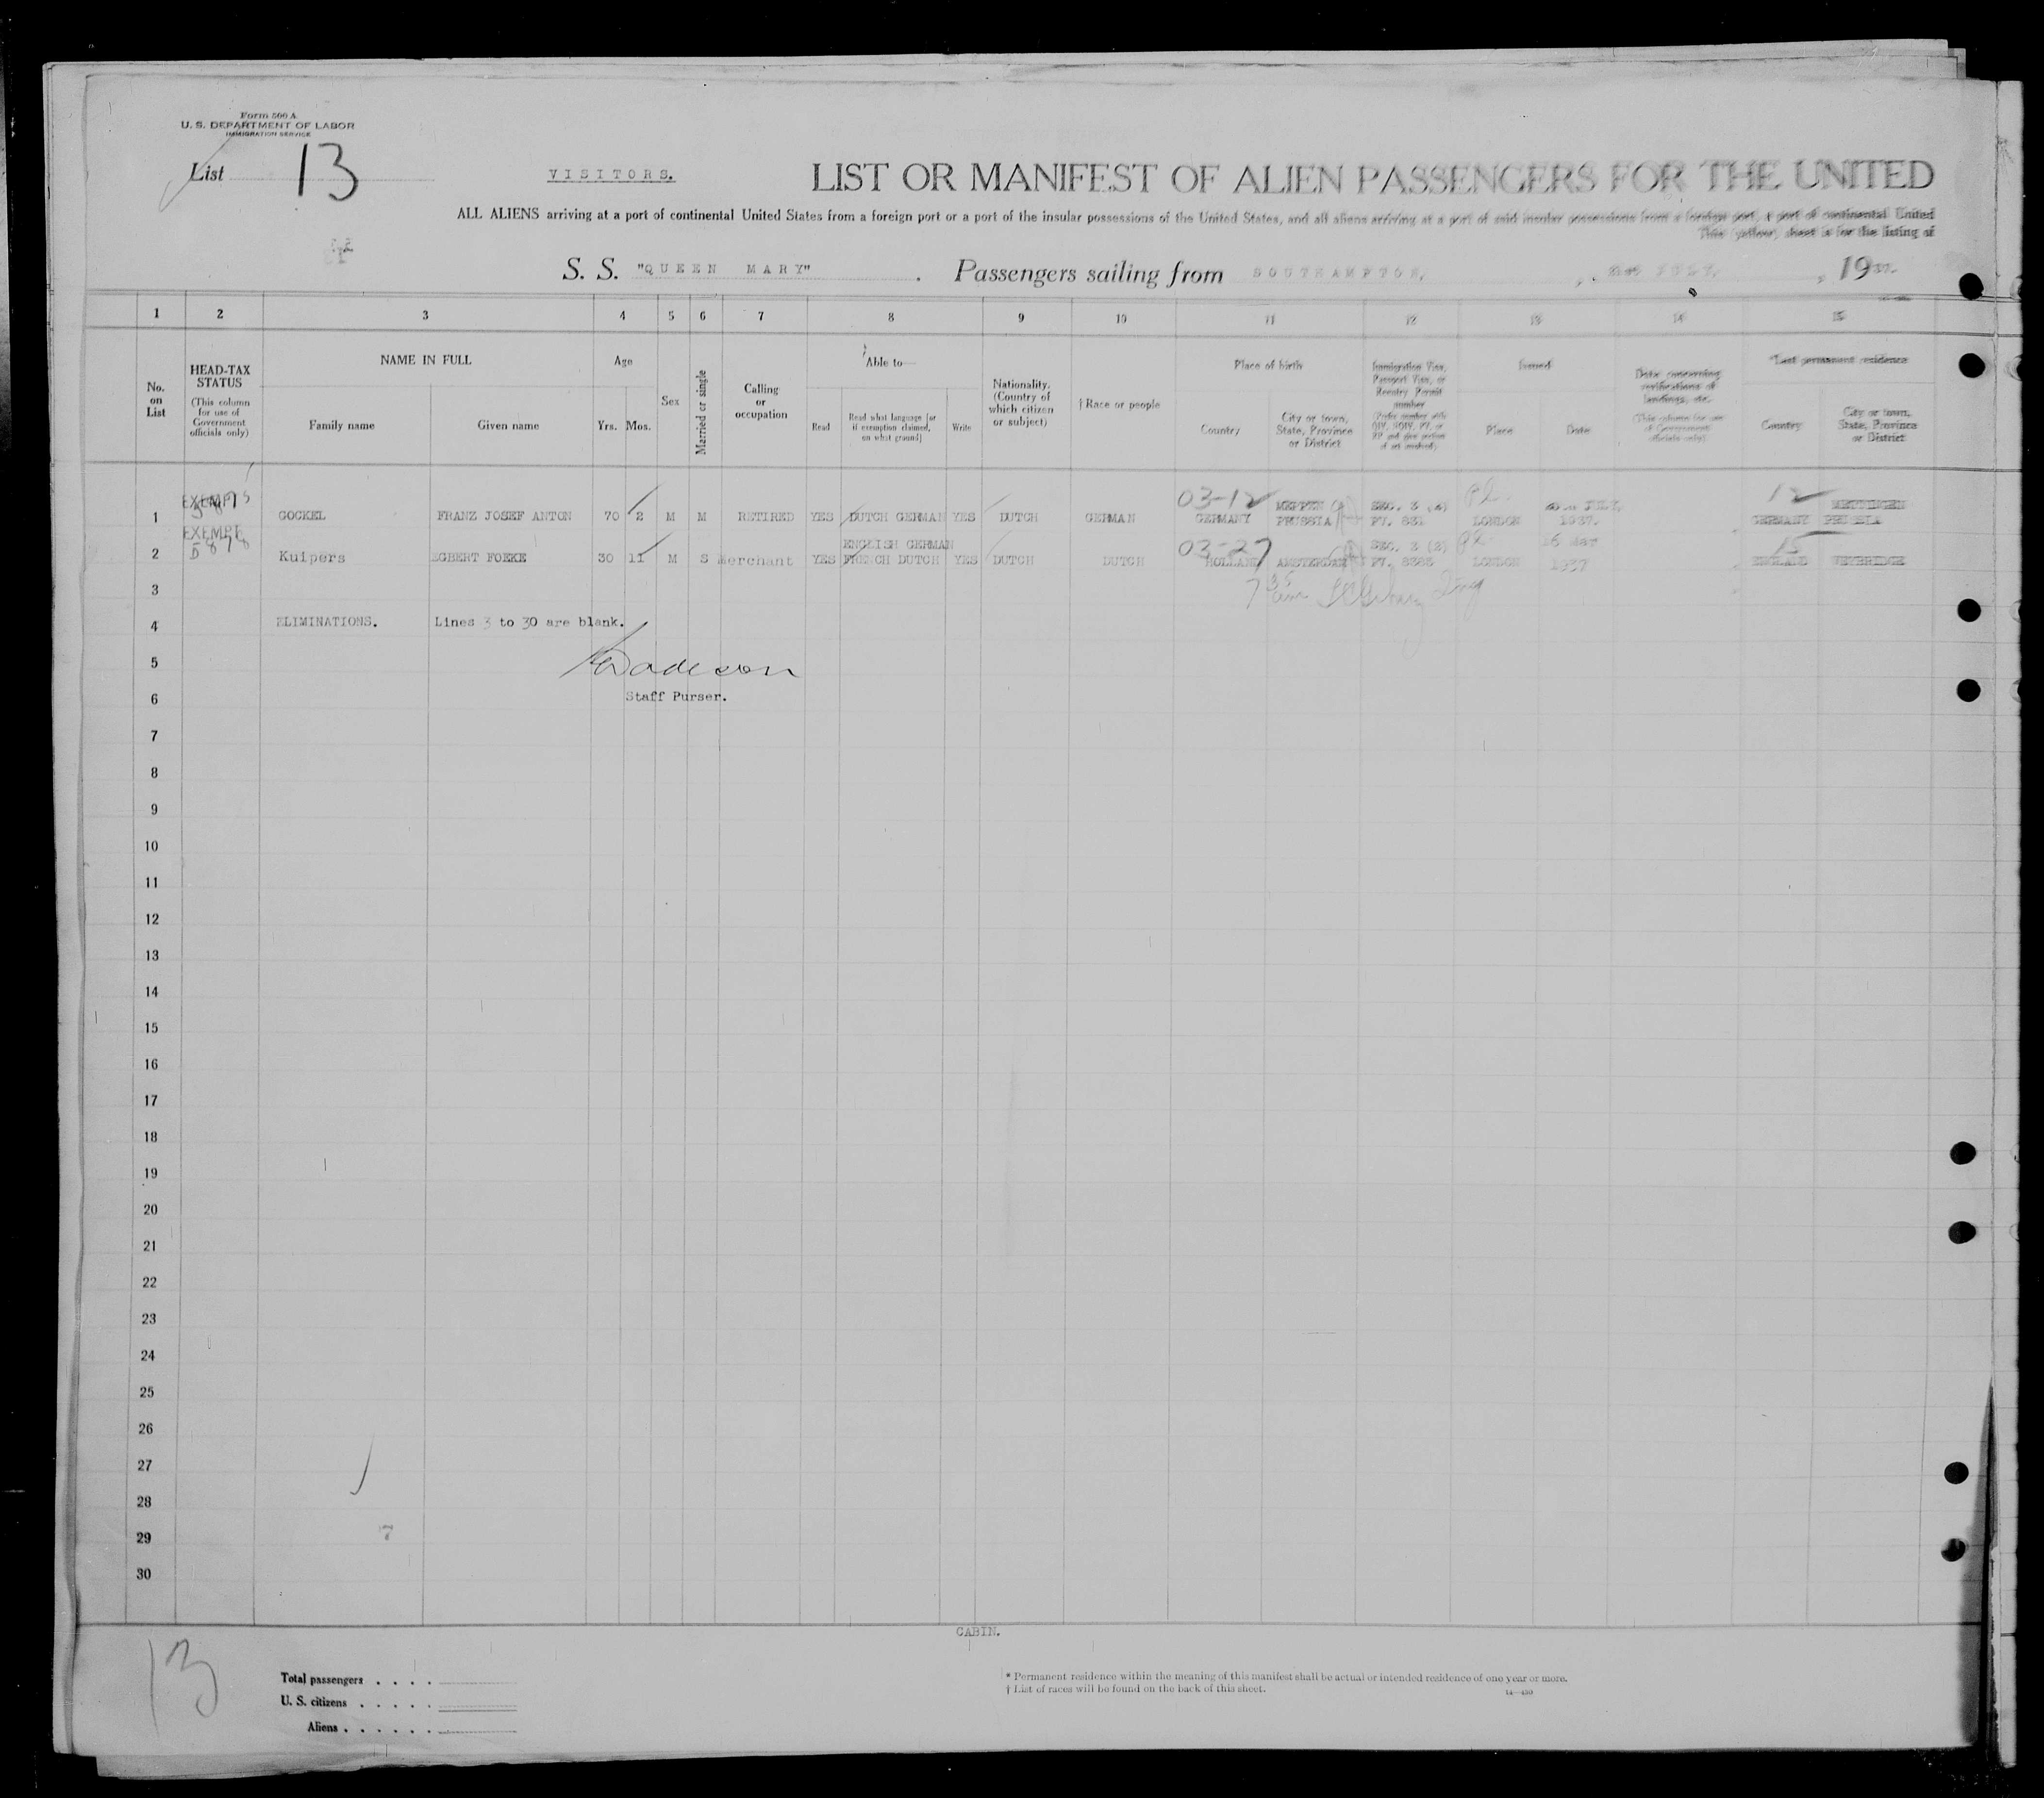 Form 500 A
U. S. DEPARTMENT OF LABOR
IMMIGRATION SERVICE
List 13
VISITORS.
LIST OR MANIFEST OF ALIEN PASSENGERS FOR THE UNITED
ALL ALIENS arriving at a port of continental United States from a foreign port or a port of the insular possessions of the United States, and all aliens arriving at a port of said insular possessions from a foreign port, a port of continental United
This (yellow) sheet is for the listing of
S. S. "QUEEN MARY" . Passengers sailing from SOUTHAMPTON, , JULY, , 1937.
1 2 3 4 5 6 7 8 9 10 11 12 13 14 15
No. on List
HEAD-TAX STATUS
(This column for use of Government officials only)
NAME IN FULL
Family name Given name
Age
Yrs. Mos.
Sex
Married or single
Calling or occupation
Able to—
Read Read what language [or if exemption claimed, on what ground] Write
Nationality. (Country of which citizen or subject)
† Race or people
Place of birth
Country City or town, State, Province or District
Immigration Visa, Passport Visa, or Reentry Permit number
Issued
Place Date
Data concerning verifications of landings, etc.
(This column for use of Government officials only)
*Last permanent residence
Country City or town, State, Province or District
1 EXEMPT GOCKEL FRANZ JOSEF ANTON 70 2 M M RETIRED YES DUTCH GERMAN YES DUTCH GERMAN 03-12 GERMANY MEPPEN PRUSSIA SEC. 3 (2) PV. 831 LONDON JULY, 1937. GERMANY PRUSSIA
2 EXEMPT 5878 Kuipers EGBERT FOEKE 30 11 M S Merchant YES ENGLISH GERMAN FRENCH DUTCH YES DUTCH DUTCH 03-27 HOLLAND AMSTERDAM SEC. 3 (2) PV. LONDON 1937 ENGLAND WEYBRIDGE
3
4 ELIMINATIONS. Lines 3 to 30 are blank.
5
6 Staff Purser.
7
8
9
10
11
12
13
14
15
16
17
18
19
20
21
22
23
24
25
26
27
28
29
30
CABIN.
13
Total passengers . . . .
U. S. citizens . . . . .
Aliens . . . . . .
* Permanent residence within the meaning of this manifest shall be actual or intended residence of one year or more.
† List of races will be found on the back of this sheet.
14—430